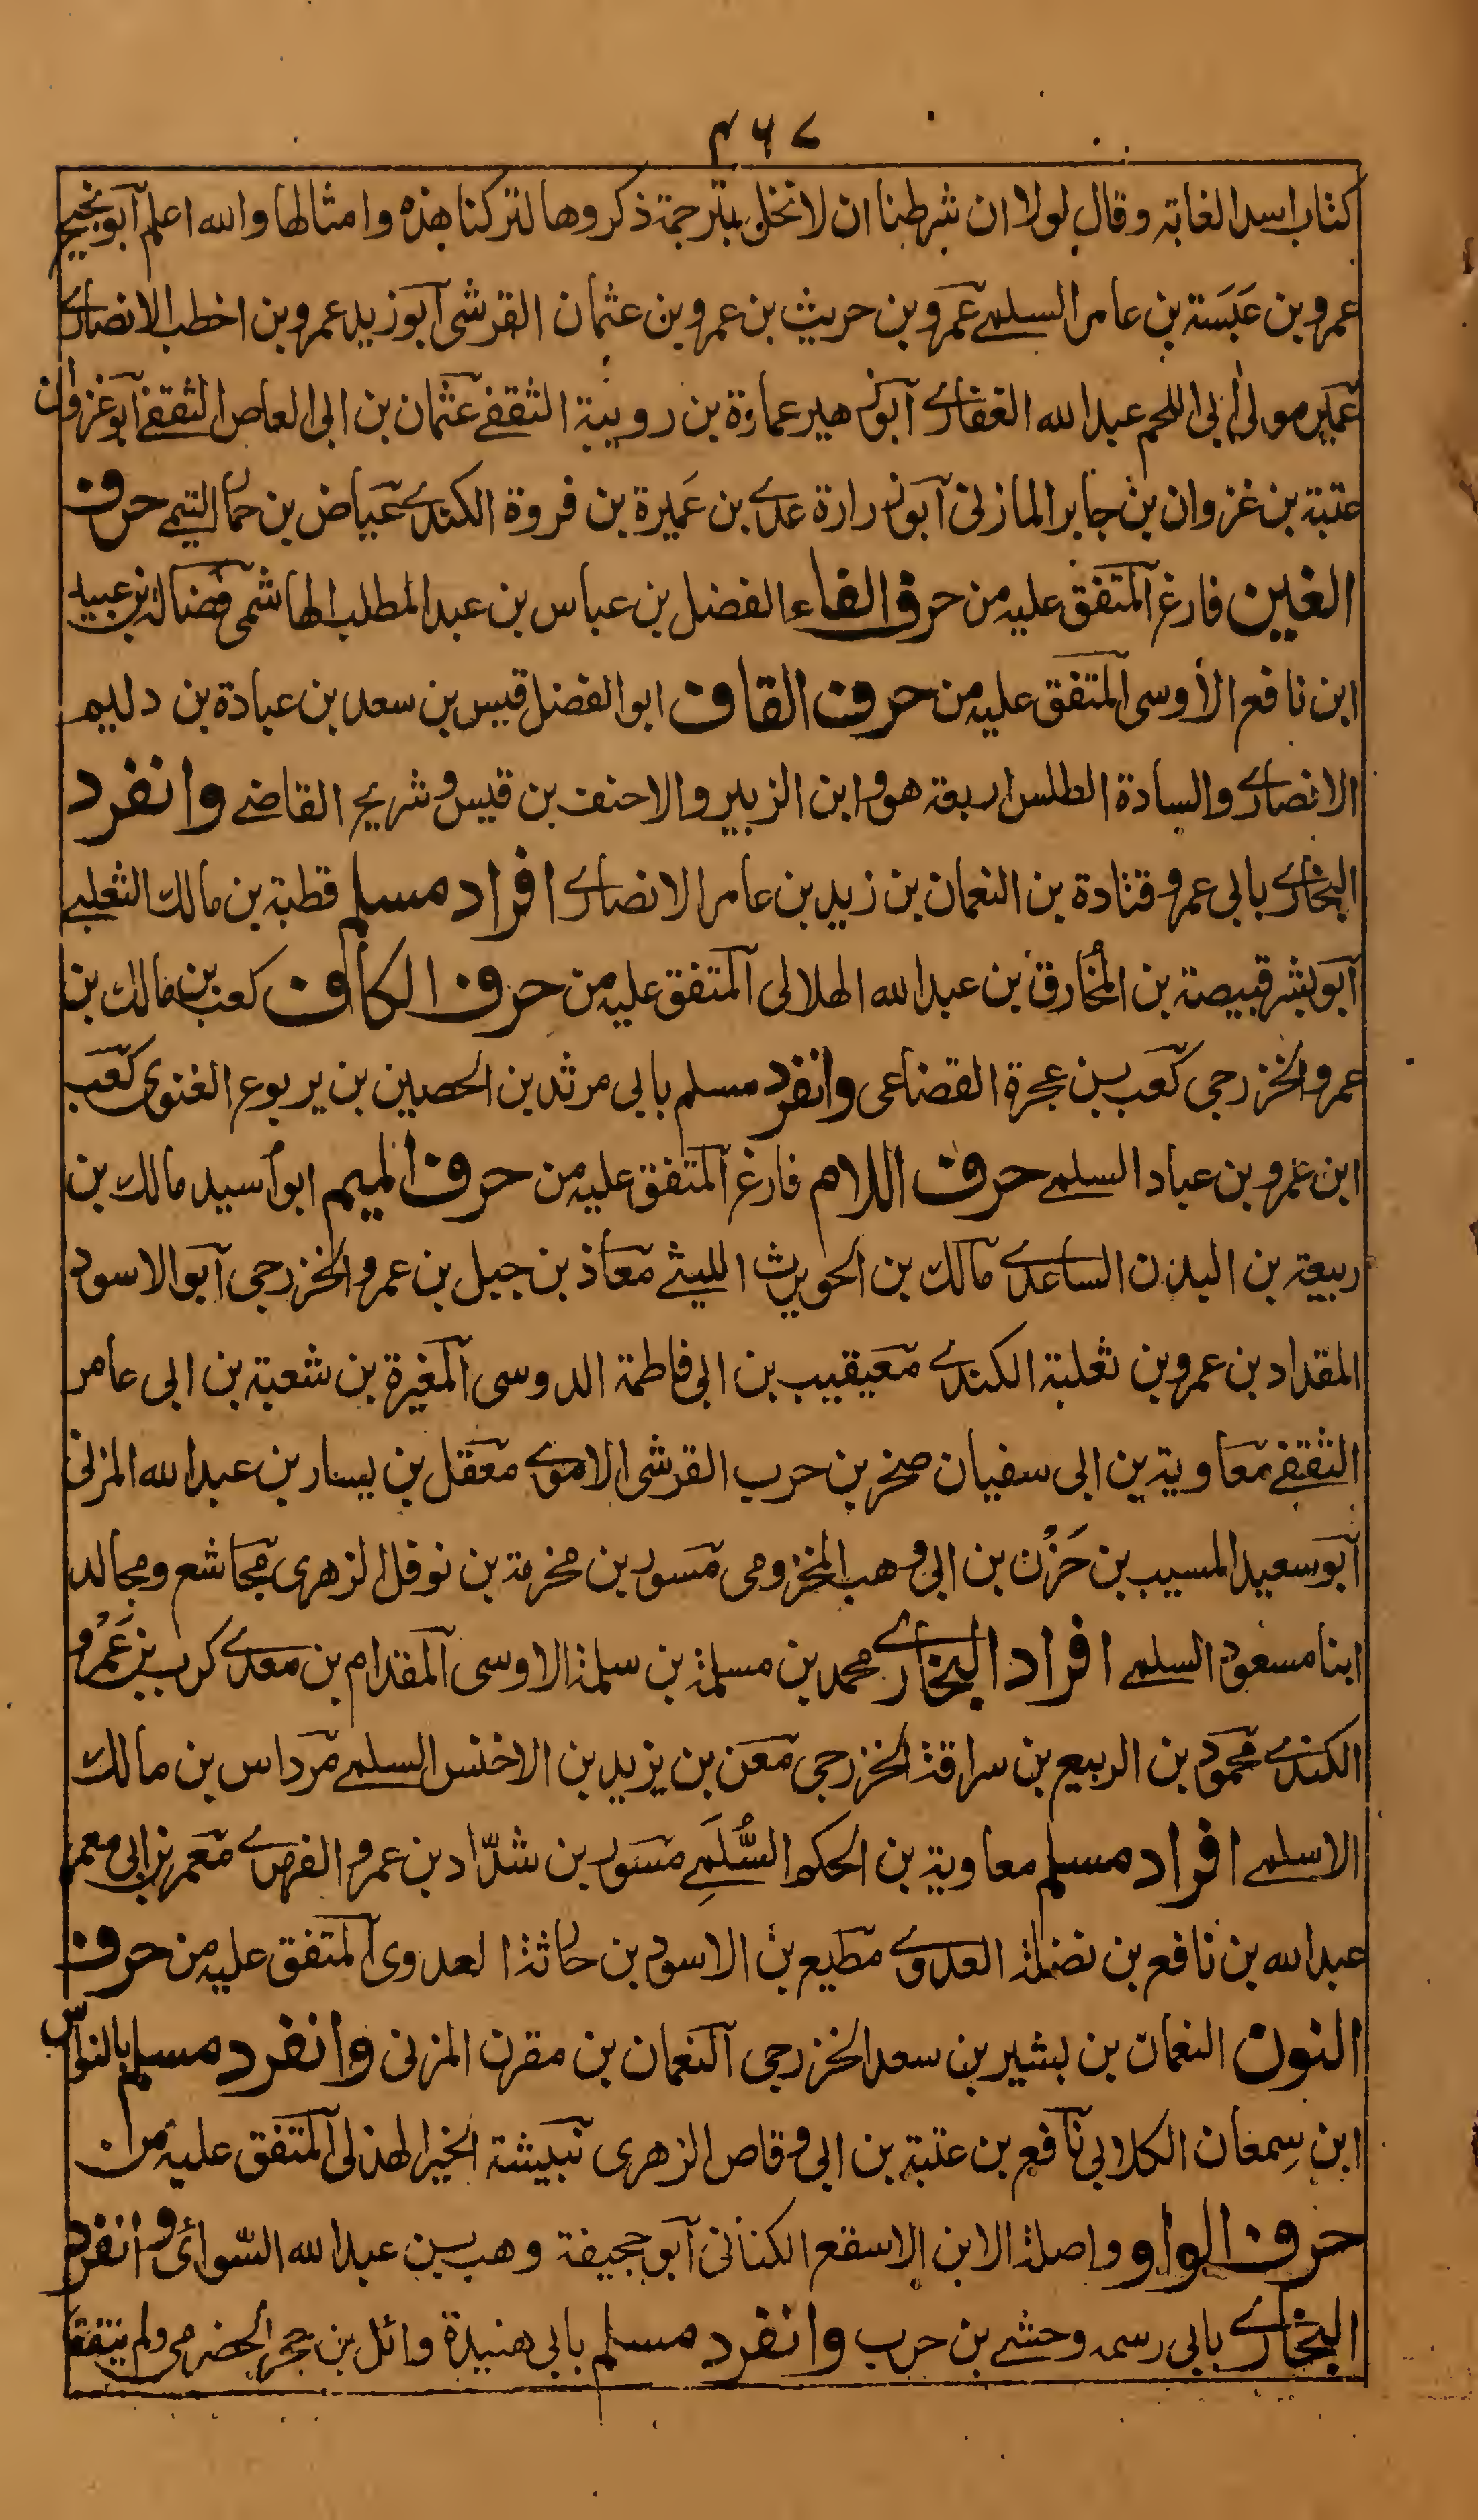 ۴۶۷
كتاب اسد الغابة وقال لولا ان شرطنا ان لا نخل بترجمة ذكروها لتركنا هذه وامثالها والله اعلم آبو نجيح
عمرو بن عَبَسَة بن عامر السلمے عمرو بن حريث بن عمرو بن عثمان القرشى آبو زيد عمرو بن اخطب الانصارے
عمير مولى ابى اللحم عبد الله الغفارے آبو زهير عمارة بن رويبة الثقفے عثمان بن ابى العاص الثقفے آبو غزوان
عتبة بن غزوان بن جابر المازنى آبو زرارة عدے بن عَميرة بن فروة الكندے عياض بن حمار التيمے حرف
الغين فارغ آلمتفق عليه من حرف الفاء الفضل بن عباس بن عبد المطلب الهاشمى فضالة بن عبيد
ابن نافع الأوسى آلمتفق عليه من حرف القاف ابو الفضل قيس بن سعد بن عبادة بن دليم
الانصارے والسادة الطلس اربعة هو وابن الزبير والاحنف بن قيس وشريح القاضے وانفرد
البخارے بابى عمرو قتادة بن النعمان بن زيد بن عامر الانصارے افراد مسلم قطبة بن مالك الثعلبے
آبو بشر قبيصة بن المُخارق بن عبد الله الهلالى آلمتفق عليه من حرف الكاف كعب بن مالك بن
عمرو الخزرجى كعب بن عجرة القضاعى وانفرد مسلم بابى مرثد بن الحصين بن يربوع الغنوى كعب
ابن عمرو بن عباد السلمے حرف اللام فارغ آلمتفق عليه من حرف الميم ابو أسيد مالك بن
ربيعة بن البدن الساعدے مالك بن الحويرث الليثے معاذ بن جبل بن عمرو الخزرجى آبو الاسود
المقداد بن عمرو بن ثعلبة الكندے معيقيب بن ابى فاطمة الدوسى آلمغيرة بن شعبة بن ابى عامر
الثقفے معاوية بن ابى سفيان صخر بن حرب القرشى الاموے معقل بن يسار بن عبد الله المزنى
آبو سعيد المسيب بن حَزْن بن ابى وهب المخزومى مسور بن مخرمة بن نوفل الزهرى مجاشع ومجالد
ابنا مسعود السلمے افراد البخارے محمد بن مسلمة بن سلمة الاوسى آلمقدام بن معدے كرب بن عَمْرو
الكندے محمود بن الربيع بن سراقة الخزرجى معن بن يزيد بن الاخنس السلمے مرداس بن مالك
الاسلمے افراد مسلم معاوية بن الحكم السُّلَمِے مسور بن شدّاد بن عمرو الفهرے معمر بن ابى معمر
عبد الله بن نافع بن نضلة العدوے مطيع بن الاسود بن حارثة العدوى آلمتفق عليه من حرف
النون النعمان بن بشير بن سعد الخزرجى آلنعمان بن مقرن المزنى وانفرد مسلم بالنواس
ابن سِمعان الكلابى نافع بن عتبة بن ابى وقاص الزهرى نبيشة الخير الهذلى آلمتفق عليه من
حرف الواو واصلة الابن الاسقع الكنانى آبو جحيفة وهب بن عبد الله السّوائى وانفرد
البخارے بابى رسمه وحشے بن حرب وانفرد مسلم بابى هنيدة وائل بن حجر الحضرمى ولم يتفقا